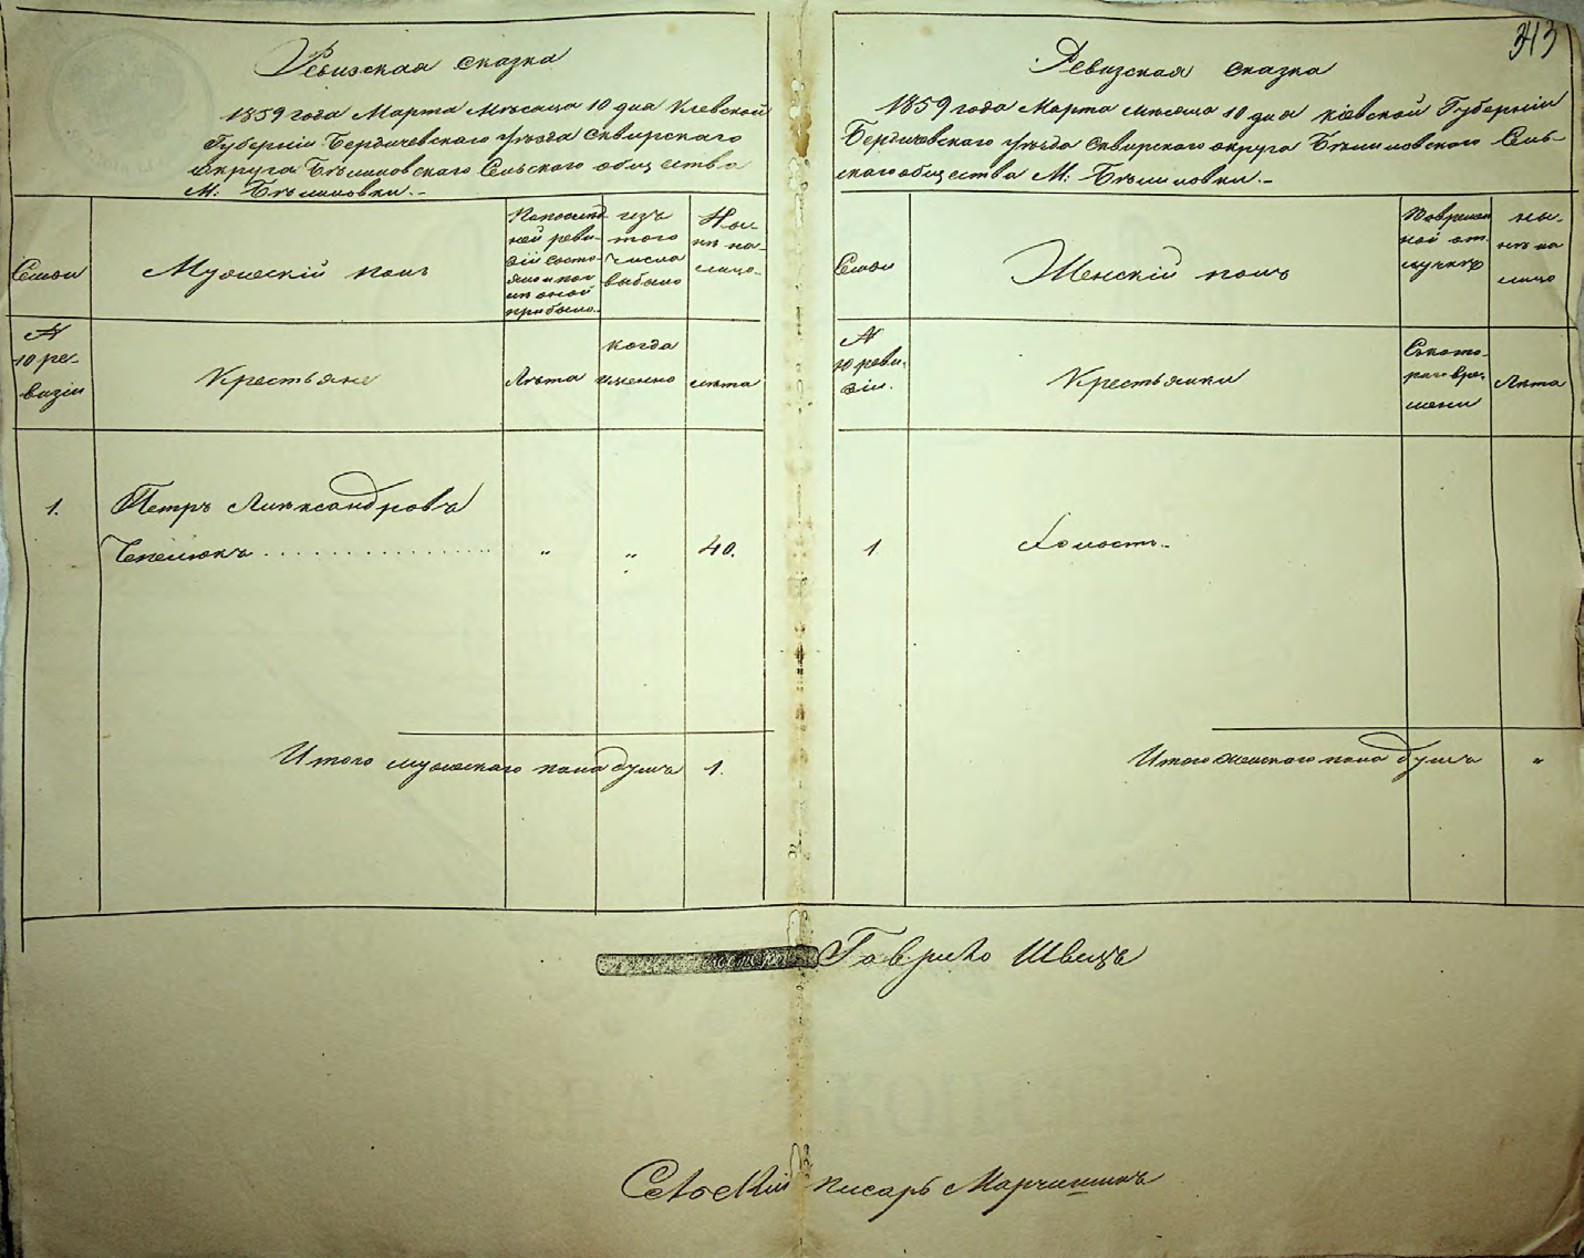 313
Ревизская сказка
1859 года Марта Мѣсяца 10 дня Кіевской
Губерніи Бердичевскаго уѣзда Сквирскаго
округа Бѣлиловскаго Сельскаго общества
М: Бѣлиловки.-
Семьи
Мужескій полъ
По послѣд
ней реви-
зіи состо-
яло и пос
лѣ оной
прибыло.
изъ
того
числа
выбыло
Ны-
нѣ на-
лицо.
№
10 ре-
визіи
Крестьяне
Лѣта
когда
именно
лѣта
1.
Петръ Александровъ
Чепелюкъ . . . . . . . . . . . . . . . . „ „ 40.
Итого мужескаго пола душъ 1.
Ревизская сказка
1859 года Марта мѣсяца 10 дня Кіевской Губерніи
Бердичевскаго уѣзда Сквирскаго округа Бѣлиловскаго Сель-
скаго общества М: Бѣлиловки.-
Семьи
Женскій полъ
Во времен
ной от
лучкѣ
ны-
нѣ на
лицо
№
10 реви-
зіи.
Крестьянки
Съ кото-
раго вре-
мени
Лѣта
1 Холостъ.-
Итого женскаго пола душъ „
Гаврило Швецъ
Сельскій писарь